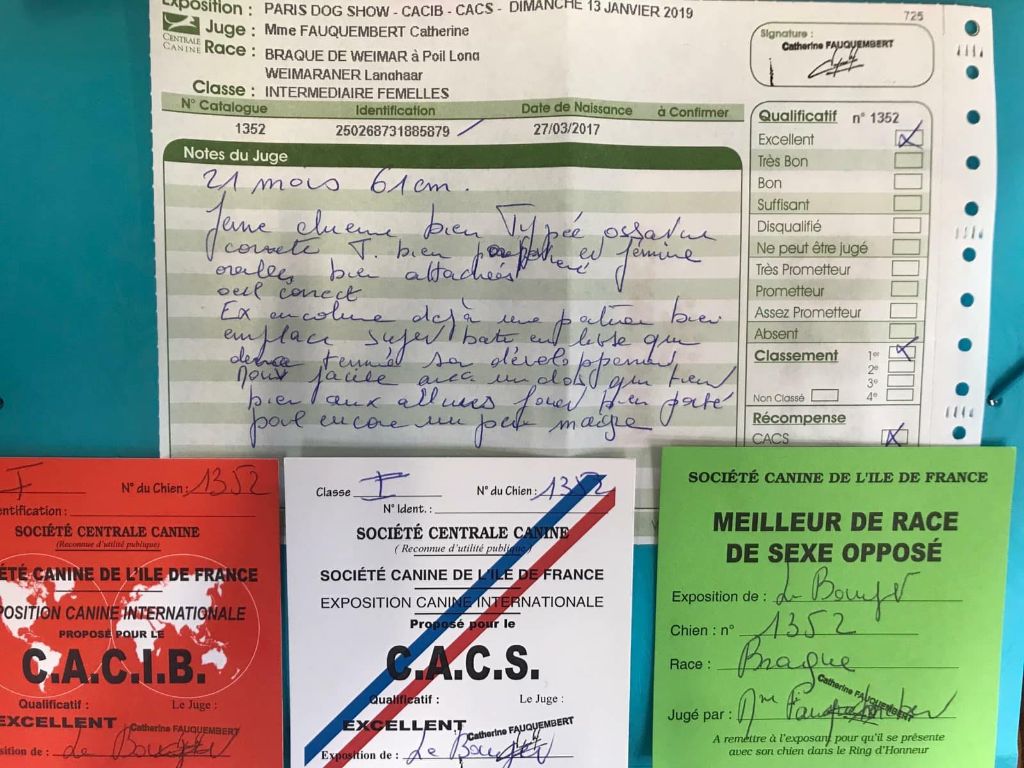 Exposition : PARIS DOG SHOW - CACIB - CACS - DIMANCHE 13 JANVIER 2019
725
CENTRALE CANINE
Juge : Mme FAUQUEMBERT Catherine
Race : BRAQUE DE WEIMAR à Poil Long
WEIMARANER Langhaar
Classe : INTERMEDIAIRE FEMELLES
Signature :
Catherine FAUQUEMBERT
N° Catalogue Identification Date de Naissance à Confirmer
1352 250268731885879 27/03/2017
Notes du Juge
21 mois 61 cm.
Jeune chienne bien Typée ossature
correcte T. bien et féminine
oreilles bien attachées
oeil correct
Ex encolure déjà une poitrine bien
en place super bate en lisse qui
termine son développement
facile avec un dos qui tien
bien aux allures fouet bien porté
poil encore un peu maigre
Qualificatif n° 1352
Excellent
Très Bon
Bon
Suffisant
Disqualifié
Ne peut être jugé
Très Prometteur
Prometteur
Assez Prometteur
Absent
Classement 1er
2e
3e
Non Classé 4e
Récompense
CACS
F N° du Chien : 1352
entification :
SOCIÉTÉ CENTRALE CANINE
(Reconnue d'utilité publique)
ÉTÉ CANINE DE L'ILE DE FRANCE
POSITION CANINE INTERNATIONALE
PROPOSÉ POUR LE
C.A.C.I.B.
Qualificatif : Le Juge :
EXCELLENT Catherine FAUQUEMBERT
osition de : Le Bourget
Classe I N° du Chien : 1352
N° Ident. :
SOCIÉTÉ CENTRALE CANINE
( Reconnue d'utilité publique )
SOCIÉTÉ CANINE DE L'ILE DE FRANCE
EXPOSITION CANINE INTERNATIONALE
Proposé pour le
C.A.C.S.
Qualificatif : Le Juge :
EXCELLENT Catherine FAUQUEMBERT
Exposition de : Le Bourget
SOCIÉTÉ CANINE DE L'ILE DE FRANCE
MEILLEUR DE RACE
DE SEXE OPPOSÉ
Exposition de : Le Bourget
Chien : n° 1352
Race : Braque
Catherine FAUQUEMBERT
Jugé par : Mme Fauquembert
A remettre à l'exposant pour qu'il se présente
avec son chien dans le Ring d'Honneur